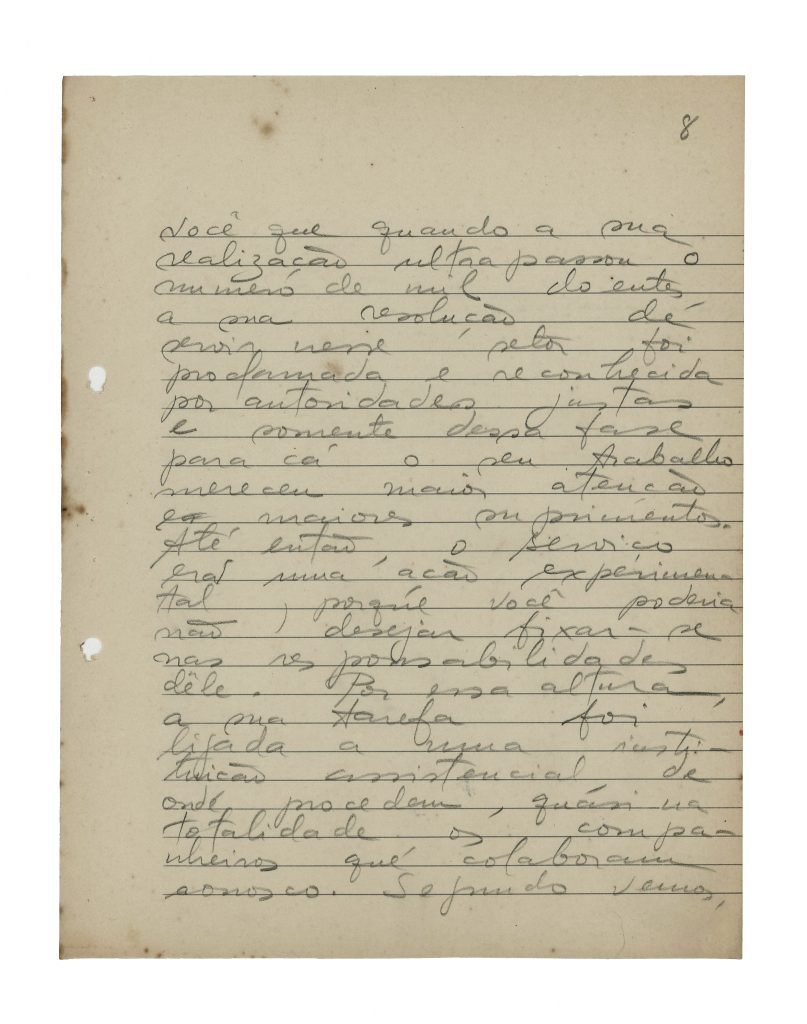 8
você que quando a sua
realização ultrapassou o
numeró de mil doentes,
a sua resolução dé
servir nesse setor foi
proclamada e reconhecida
por autoridades justas
e somente dessa fase
para cá o seu trabalho
mereceu maior atencão
e maiores suprimentos.
Até então, o serviço
era uma ação experimen
tal, porqúe você poderia
não desejar fixar-se
nas responsabilidades
dêle. Por essa altura,
a sua tarefa foi
ligada a uma insti-
tuicão assistencial de
onde procedem, quási na
totalidade os compa-
nheiros qué colaboram
conosco. Segundo vemos,